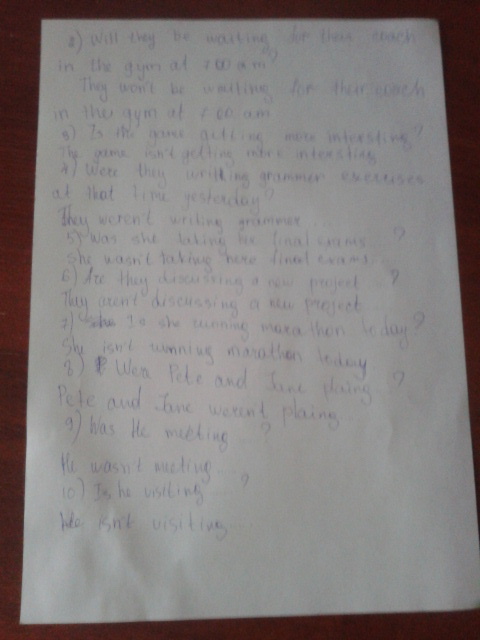 2) Will they be waiting for their coach
in the gym at 7 00 a m?
They won't be waiting for their coach
in the gym at 7 00. am
3) Is the game getting more interesting?
The game isn't getting more interesting
4) Were they writting grammer exercises
at that time yesterday?
They weren't writing grammer
5) Was she taking her final exams ?
She wasn't taking here final exams
6) Are they discussing a new project ?
They aren't discussing a new project
7) Is she running marathon today?
She isn't running marathon today
8) Wera Pete and Jane plaing ?
Pete and Jane weren't plaing
9) Was He meeting ?
He wasn't meeting ...
10) Is he visiting ?
He isn't visiting